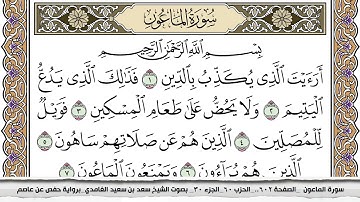 سُورَةُ المَاعُونِ
بِسْمِ اللَّهِ الرَّحْمَٰنِ الرَّحِيمِ
أَرَءَيْتَ الَّذِي يُكَذِّبُ بِالدِّينِ ١ فَذَٰلِكَ الَّذِي يَدُعُّ
الْيَتِيمَ ٢ وَلَا يَحُضُّ عَلَىٰ طَعَامِ الْمِسْكِينِ ٣ فَوَيْلٌ
لِّلْمُصَلِّينَ ٤ الَّذِينَ هُمْ عَن صَلَاتِهِمْ سَاهُونَ ٥
الَّذِينَ هُمْ يُرَاءُونَ ٦ وَيَمْنَعُونَ الْمَاعُونَ ٧
سورة الماعون _الصفحة ٦٠٢_ الحزب ٦٠_الجزء ٣٠_ بصوت الشيخ سعد بن سعيد الغامدي _برواية حفص عن عاصم